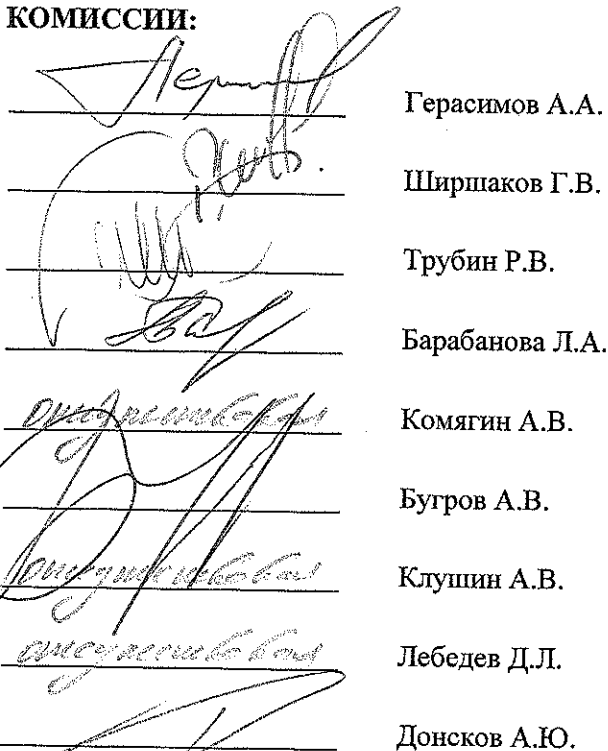 КОМИССИИ:
Герасимов А.А.
Ширшаков Г.В.
Трубин Р.В.
Барабанова Л.А.
отсутствовал Комягин А.В.
Бугров А.В.
отсутствовал Клушин А.В.
отсутствовал Лебедев Д.Л.
Донсков А.Ю.